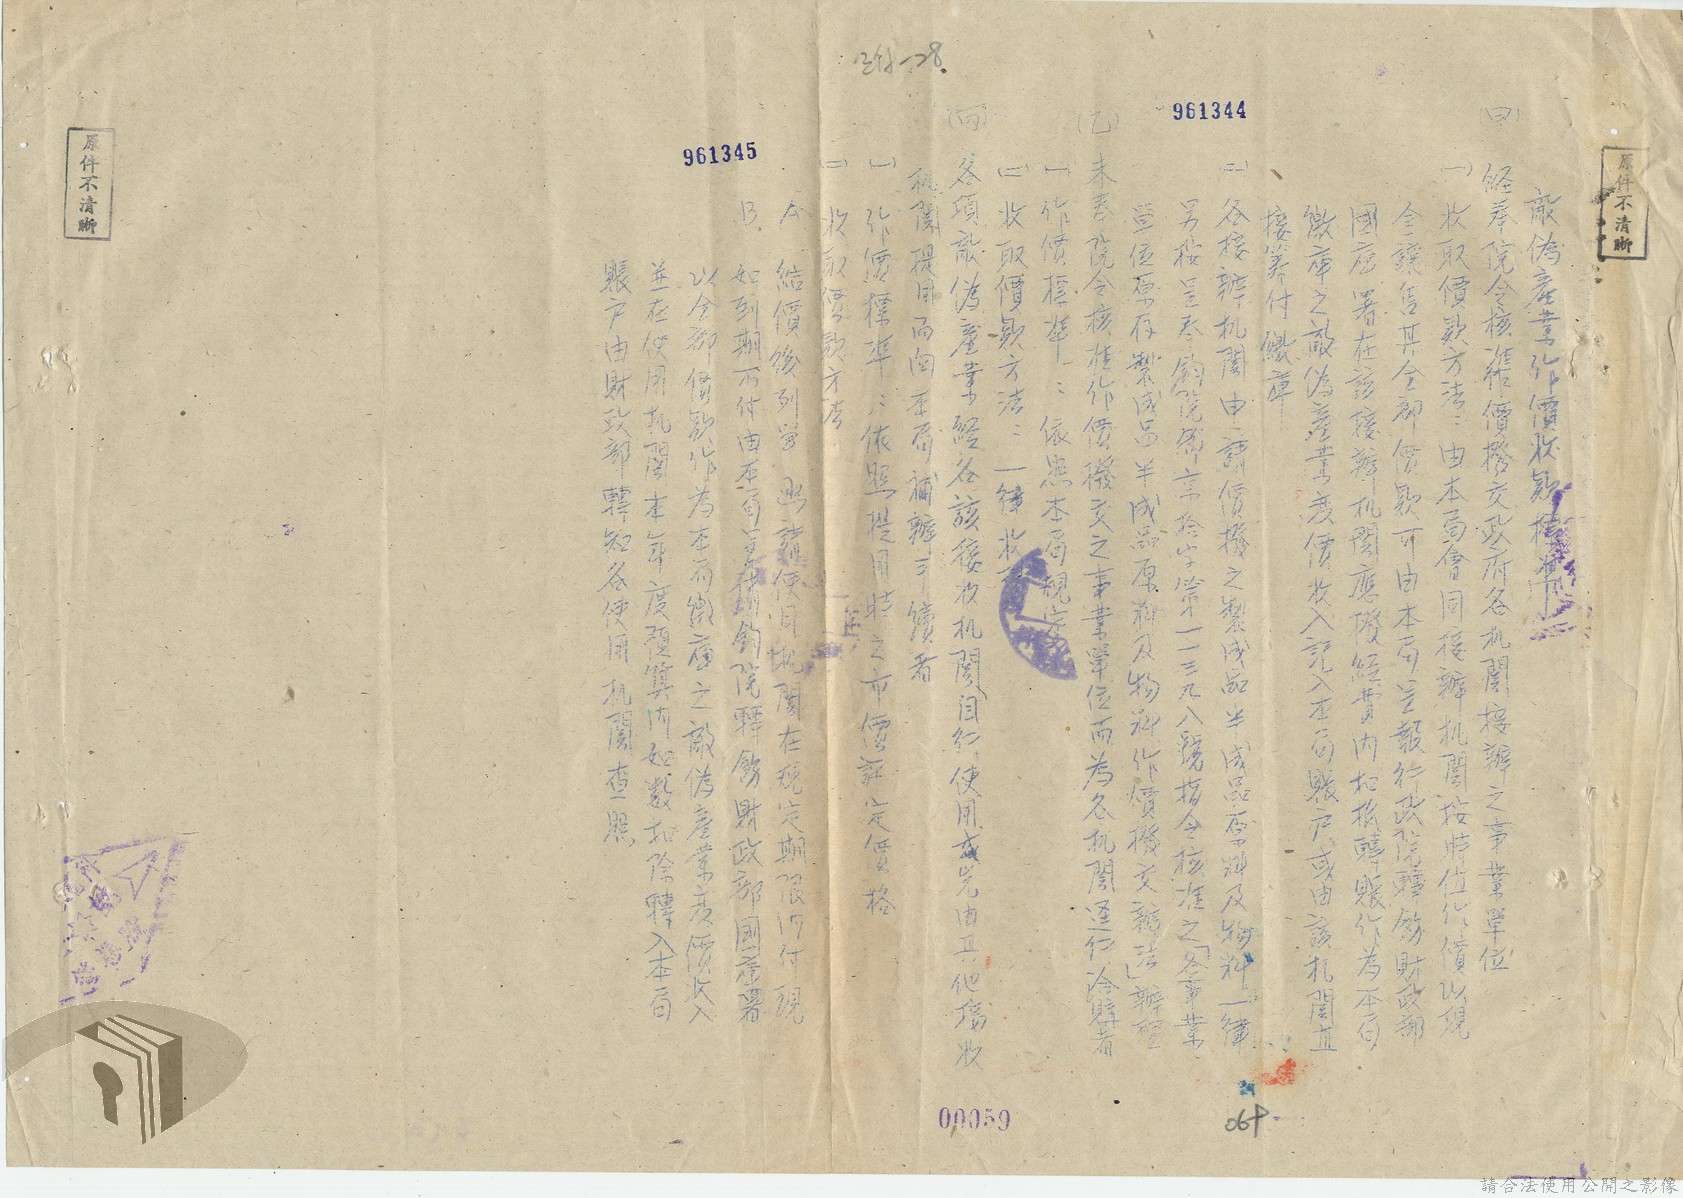 961344
961345
原件不清晰
原件不清晰
敵偽產業作價收款標準
(甲)
經奉院令核准作價撥交政府各机関接辦之事業單位
(一)收取價款方法：由本局會同接辦机関按時值作價以現
金讓售其全部價款可由本局呈報行政院轉飭財政部
國庫署在該接辦机関應撥經費內扣抵轉賬作為本局
繳庫之敵偽產業產價收入記入本局賬戶或由該机関直
接籌付繳庫
(二)各接辦机関申請價撥之製成品半成品原料及物料一律
另按呈奉鈞院節京拾字第一一三九八號指令核准之「各事業
單位原存製成品半成品原料及物料作價撥交辦法」辦理
(乙)
未奉院令核准作價撥交之事業單位而為各机関逕行洽購者
(一)作價標準：依照本局規定
(二)收取價款方法：一律收現
(丙)
各項敵偽產業經各該接收机関自行使用或先由其他接收
机関提用而向本局補辦手續者
(一)作價標準：依照提用時之市價評定價格
(二)收取價款方法
A 結價後列單通請使用机関在規定期限內付現
B. 如到期不付由本局呈請鈞院轉飭財政部國庫署
以全部價款作為本局繳庫之敵偽產業產價收入
並在使用机関本年度預算內如數扣除轉入本局
賬戶由財政部轉知各使用机関查照
00059
064
請合法使用公開之影像